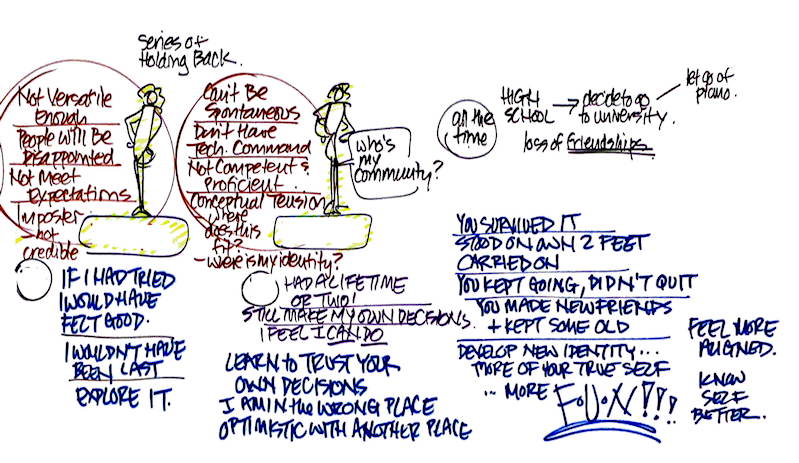 series of
Holding Back.
Not Versatile
Enough
People will Be
Disappointed
Not Meet
Expectations
Imposter
- not
credible
Can't Be
Spontaneous
Don't Have
Tech. Command
Not Competent &
Proficient
Conceptual Tension
where
does this
fit?
- where is my identity?
who's
my
community?
all the
time
HIGH
SCHOOL → decide to go
to university.
let go of
piano.
loss of friendships
IF I HAD TRIED
I WOULD HAVE
FELT GOOD.
I WOULDN'T HAVE
BEEN LAST
EXPLORE IT.
HAD A LIFETIME
OR TWO!
STILL MAKE MY OWN DECISIONS.
I FEEL I CAN DO
LEARN to TRUST YOUR
OWN DECISIONS
I AM IN the WRONG PLACE
OPTIMISTIC WITH ANOTHER PLACE
YOU SURVIVED IT
STOOD ON OWN 2 FEET
CARRIED ON
YOU KEPT GOING, DIDN'T QUIT
YOU MADE NEW FRIENDS
+ KEPT SOME OLD
DEVELOP NEW IDENTITY...
MORE OF YOUR TRUE SELF
... MORE
F.U.N!!!
FEEL MORE
ALIGNED.
KNOW
SELF
BETTER.